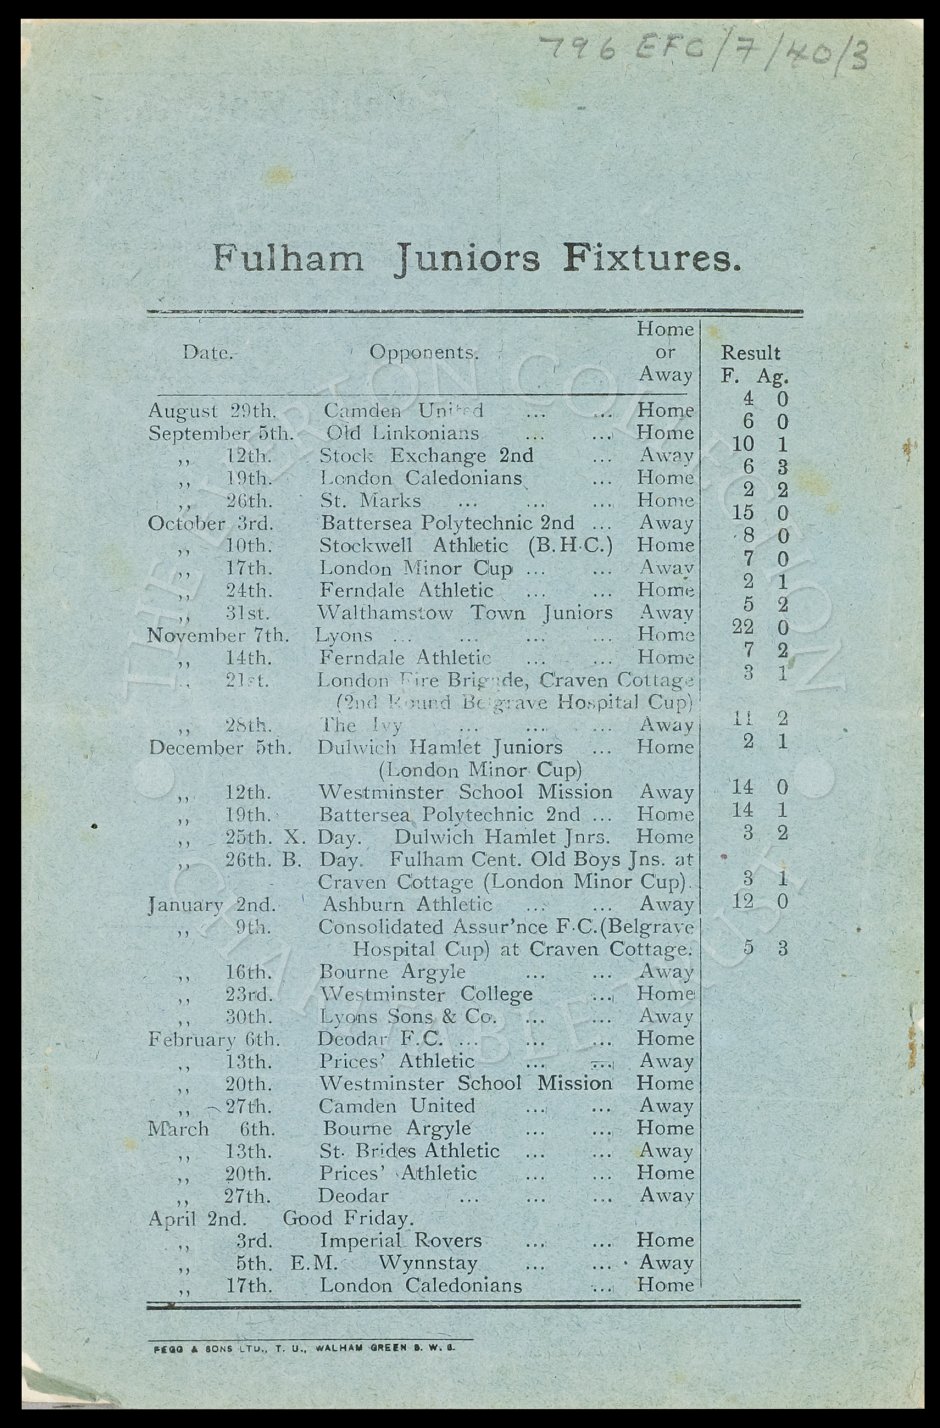 796 EFC/7/40/3
Fulham Juniors Fixtures.
Date. Opponents. Home or Away Result F. Ag.
August 29th. Camden United ... ... Home 4 0
September 5th. Old Linkonians ... ... Home 6 0
,, 12th. Stock Exchange 2nd ... Away 10 1
,, 19th. London Caledonians ... Home 6 3
,, 26th. St. Marks ... ... ... Home 2 2
October 3rd. Battersea Polytechnic 2nd ... Away 15 0
,, 10th. Stockwell Athletic (B.H.C.) Home 8 0
,, 17th. London Minor Cup ... ... Away 7 0
,, 24th. Ferndale Athletic ... ... Home 2 1
,, 31st. Walthamstow Town Juniors Away 5 2
November 7th. Lyons ... ... ... ... Home 22 0
,, 14th. Ferndale Athletic ... ... Home 7 2
,, 21st. London Fire Brigade, Craven Cottage 3 1
(2nd Round Belgrave Hospital Cup)
,, 28th. The Ivy ... ... ... Away 11 2
December 5th. Dulwich Hamlet Juniors ... Home 2 1
(London Minor Cup)
,, 12th. Westminster School Mission Away 14 0
,, 19th. Battersea Polytechnic 2nd ... Home 14 1
,, 25th. X. Day. Dulwich Hamlet Jnrs. Home 3 2
,, 26th. B. Day. Fulham Cent. Old Boys Jns. at
Craven Cottage (London Minor Cup). 3 1
January 2nd. Ashburn Athletic ... ... Away 12 0
,, 9th. Consolidated Assur'nce F.C.(Belgrave
Hospital Cup) at Craven Cottage. 5 3
,, 16th. Bourne Argyle ... ... Away
,, 23rd. Westminster College ... Home
,, 30th. Lyons Sons & Co. ... ... Away
February 6th. Deodar F.C. ... ... ... Home
,, 13th. Prices' Athletic ... ... Away
,, 20th. Westminster School Mission Home
,, 27th. Camden United ... ... Away
March 6th. Bourne Argyle ... ... Home
,, 13th. St. Brides Athletic ... ... Away
,, 20th. Prices' Athletic ... ... Home
,, 27th. Deodar ... ... ... Away
April 2nd. Good Friday.
,, 3rd. Imperial Rovers ... ... Home
,, 5th. E.M. Wynnstay ... ... Away
,, 17th. London Caledonians ... Home
PEGG & SONS LTD., T. U., WALHAM GREEN S. W. 6.
THE EVERTON COLLECTION
CHARITABLE TRUST